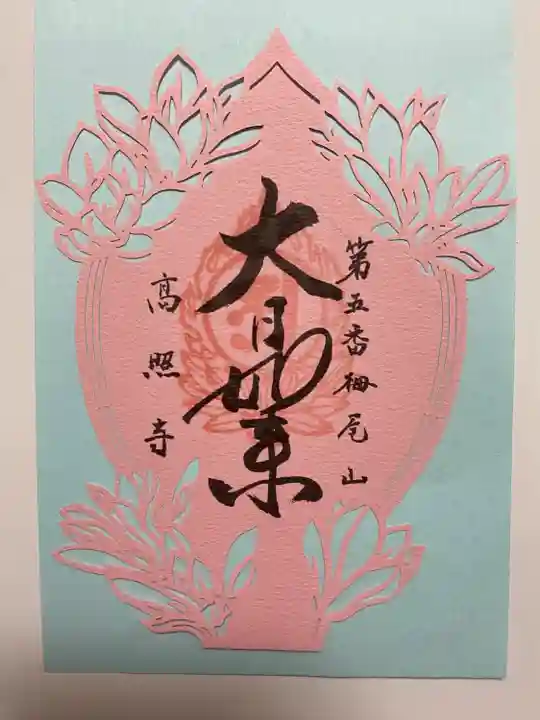 第五番袖尾山
大日如来
高照寺